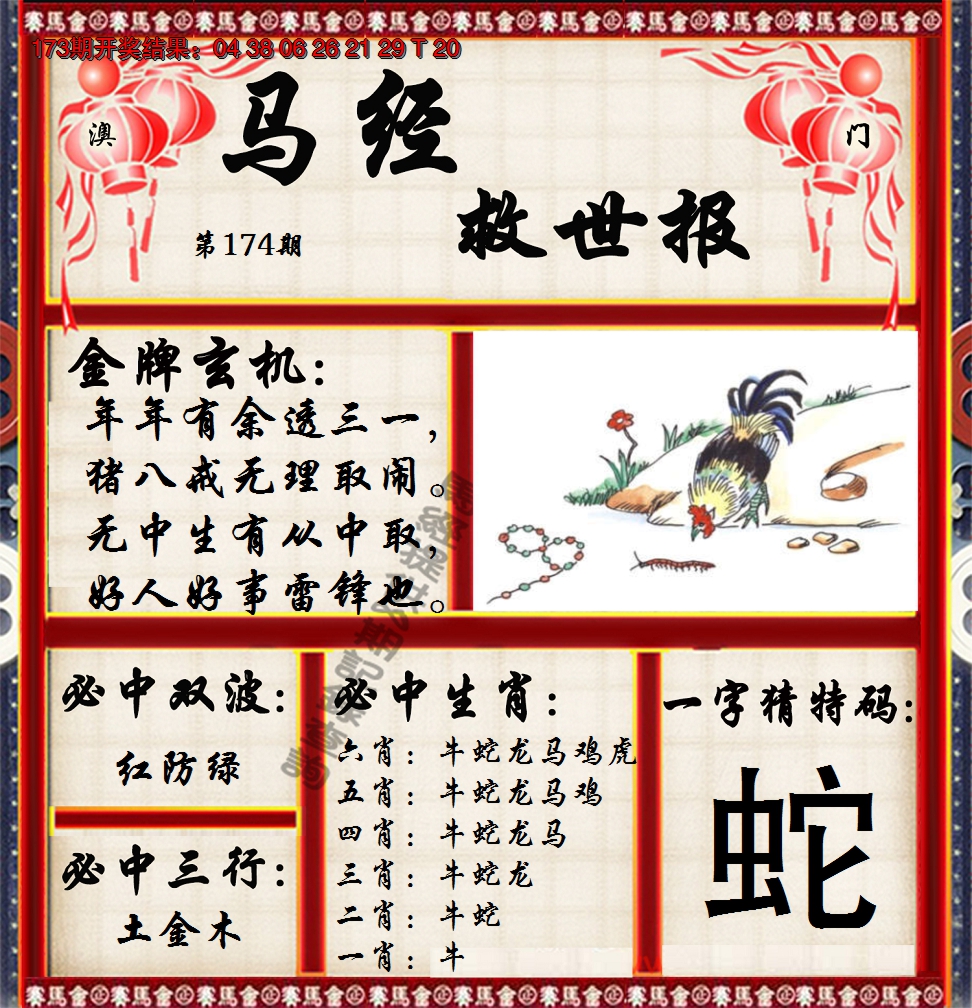 173期开奖结果：04 38 06 26 21 29 T 20
澳
门
马经
救世报
第174期
金牌玄机：
年年有余透三一，
猪八戒无理取闹。
无中生有从中取，
好人好事雷锋也。
必中双波：
红防绿
必中三行：
土金木
必中生肖：
六肖：牛蛇龙马鸡虎
五肖：牛蛇龙马鸡
四肖：牛蛇龙马
三肖：牛蛇龙
二肖：牛蛇
一肖：牛
一字猜特码：
蛇